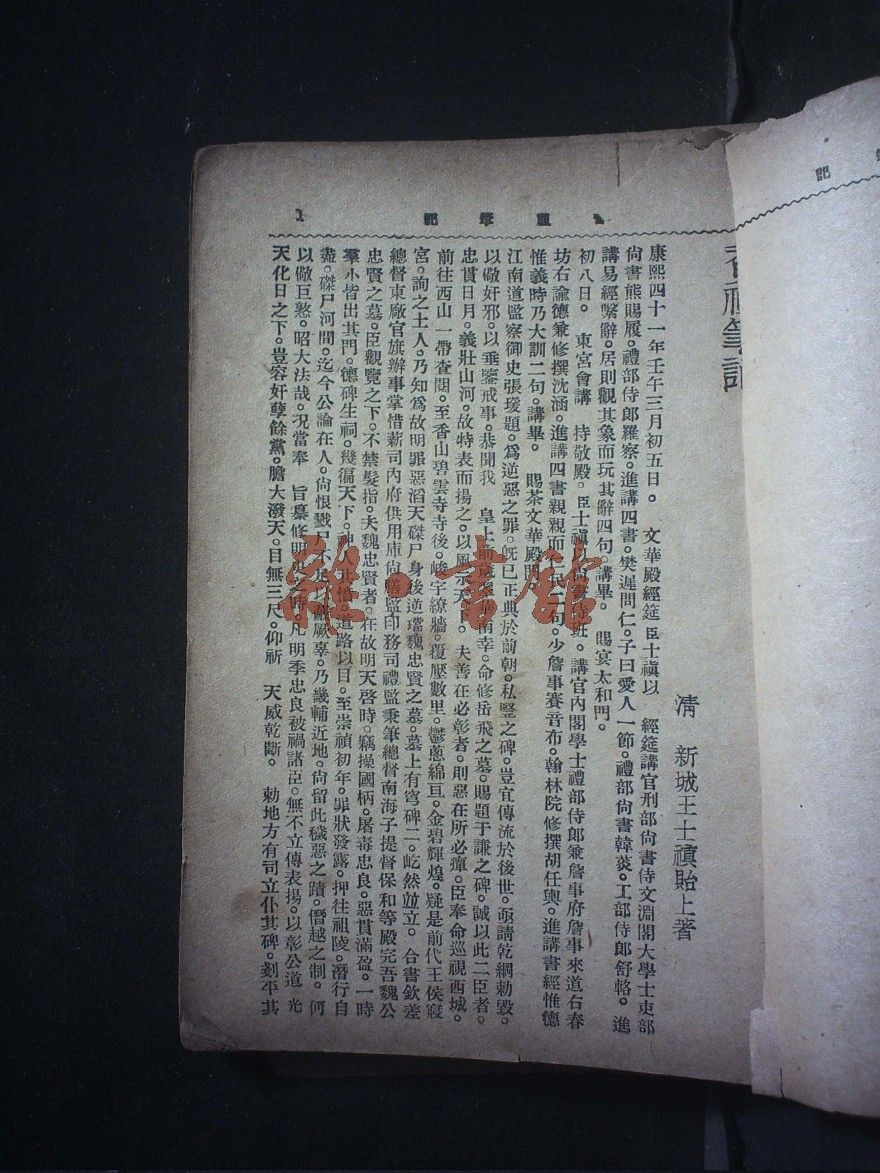 筆記
1
香祖筆記
清 新城王士禛貽上著
康熙四十一年壬午三月初五日。 文華殿經筵臣士禛以 經筵講官刑部尚書侍文淵閣大學士吏部
尚書熊賜履。禮部侍郎羅察。進講四書。樊遲問仁。子曰愛人一節。禮部尚書韓菼。工部侍郎舒輅。進
講易經繫辭。居則觀其象而玩其辭四句。講畢。 賜宴太和門。
初八日。 東宮會講 持敬殿。臣士禛以尚書侍班。講官內閣學士禮部侍郎兼詹事府詹事來道右春
坊右諭德兼修撰沈涵。進講四書親親而仁民二句。少詹事賽音布。翰林院修撰胡任輿。進講書經惟德
惟義時乃大訓二句。講畢。 賜茶文華殿門。
江南道監察御史張瑗題。爲逆惡之罪。旣已正典於前朝。私豎之碑。豈宜傳流於後世。亟請乾綱勅毀。
以儆奸邪。以垂鑒戒事。恭聞我 皇上前歲翠華南幸。命修岳飛之墓。賜題于謙之碑。誠以此二臣者。
忠貫日月。義壯山河。故特表而揚之。以風示天下。夫善在必彰者。則惡在所必癉。臣奉命巡視西城。
前往西山一帶查閱。至香山碧雲寺寺後。峻宇繚牆。覆壓數里。鬱蔥綿亘。金碧輝煌。疑是前代王侯寢
宮。詢之土人。乃知爲故明罪惡滔天磔尸身後逆璫魏忠賢之墓。墓上有穹碑二。屹然竝立。合書欽差
總督東廠官旗辦事掌惜薪司內府供用庫尚膳監印務司禮監秉筆總督南海子提督保和等殿完吾魏公
忠賢之墓。臣觀覽之下。不禁髮指。夫魏忠賢者。在故明天啓時。竊操國柄。屠毒忠良。惡貫滿盈。一時
羣小皆出其門。德碑生祠。幾徧天下。神人共憤。道路以目。至崇禎初年。罪狀發露。押往祖陵。潛行自
盡。磔尸河間。迄今公論在人。尚恨戮尸不足以蔽厥辜。乃畿輔近地。尚留此穢惡之蹟。僭越之制。何
以儆巨憝。昭大法哉。況當奉 旨纂修明史之時。凡明季忠良被禍諸臣。無不立傳表揚。以彰公道 光
天化日之下。豈容奸孽餘黨。膽大潑天。目無三尺。仰祈 天威乾斷。 勅地方有司立仆其碑。剗平其
雜·書館
記